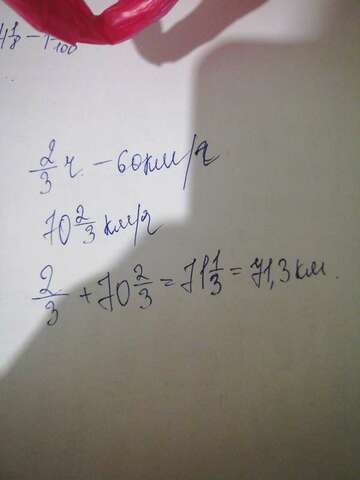 2/3 ч. - 60 км/ч
70 2/3 км/ч
2/3 + 70 2/3 = 71 1/3 = 71,3 км.